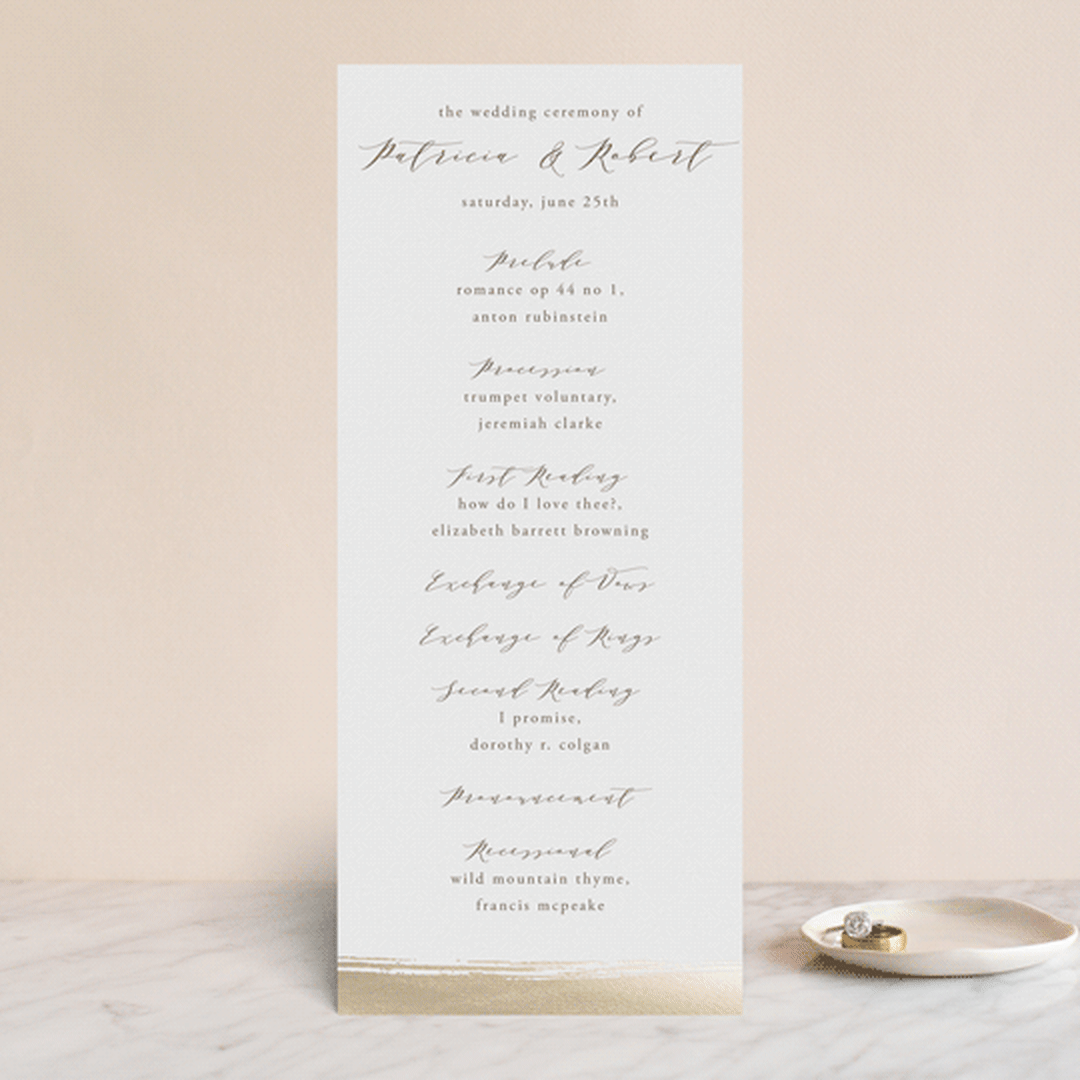 the wedding ceremony of
Patricia & Robert
saturday, june 25th
Prelude
romance op 44 no 1,
anton rubinstein
Procession
trumpet voluntary,
jeremiah clarke
First Reading
how do I love thee?,
elizabeth barrett browning
Exchange of Vows
Exchange of Rings
Second Reading
I promise,
dorothy r. colgan
Pronouncement
Recessional
wild mountain thyme,
francis mcpeake